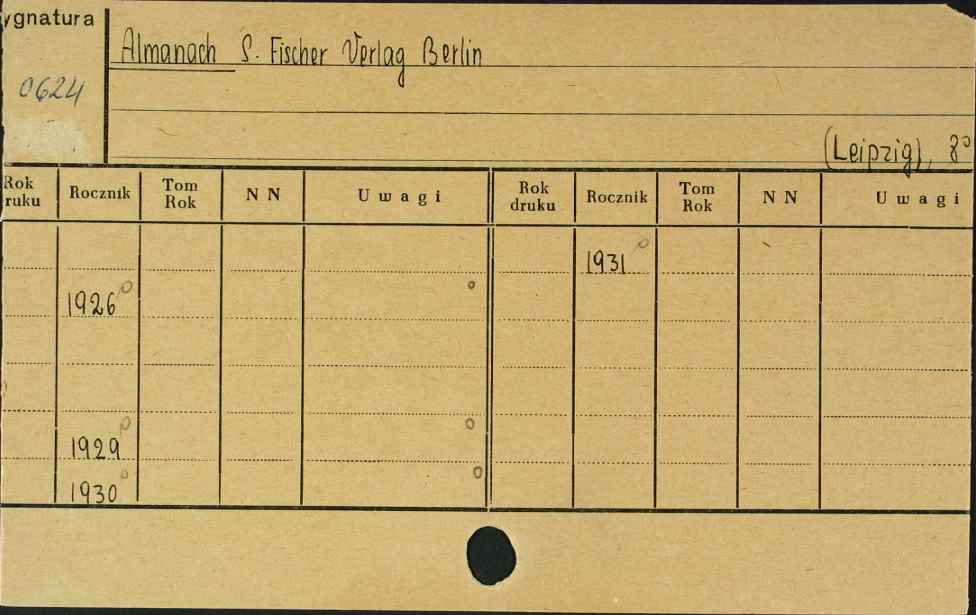 ygnatura
0624
Almanach S. Fischer Verlag Berlin
(Leipzig), 8°
Rok
ruku
Rocznik
Tom
Rok
N N
Uwagi
Rok
druku
Rocznik
Tom
Rok
N N
Uwagi
1931
1926
1929
1930